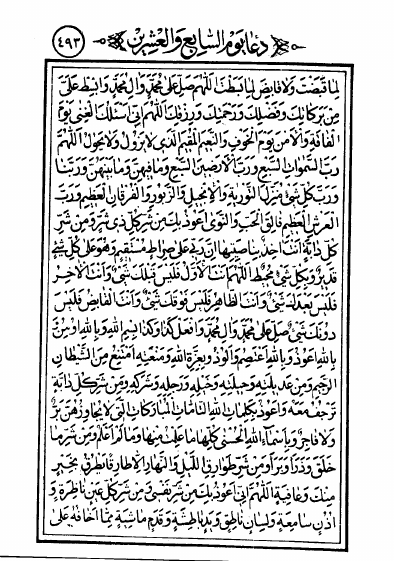 دعاء يوم السابع والعشرين
٤٩٣
لِما قَبَضْتَ وَلا قابِضَ لِما بَسَطْتَ اَللّهُمَّ صَلِّ عَلى مُحَمَّدٍ وَالِ مُحَمَّدٍ وَابْسُطْ عَلَىَّ
مِنْ بَرَكاتِكَ وَفَضْلِكَ وَرَحْمَتِكَ وَرِزْقِكَ اَللّهُمَّ اِنّى اَسْئَلُكَ الْغِنى يَوْمَ
الْفاقَةِ وَالْاَمْنَ يَوْمَ الْخَوْفِ وَالنَّعيمَ الْمُقيمَ الَّذى لا يَزُولُ وَلا يَحُولُ اَللّهُمَّ
رَبَّ السَّمواتِ السَّبْعِ وَرَبَّ الْاَرَضينَ السَّبْعِ وَما فيهِنَّ وَما بَيْنَهُنَّ وَرَبَّنا
وَرَبَّ كُلِّ شَىْءٍ مُنْزِلَ التَّوْريةِ وَالْاِنْجيلِ وَالزَّبُورِ وَالْفُرْقانِ الْعَظيمِ وَرَبَّ
الْعَرْشِ الْعَظيمِ فالِقَ الْحَبِّ وَالنَّوى اَعُوذُ بِكَ مِنْ شَرِّ كُلِّ ذى شَرٍّ وَمِنْ شَرِّ
كُلِّ دابَّةٍ اَنْتَ اخِذٌ بِناصِيَتِها اِنَّ رَبّى عَلى صِراطٍ مُسْتَقيمٍ وَهُوَ عَلى كُلِّ شَىْءٍ
قَديرٌ وَبِكُلِّ شَىْءٍ مُحيطٌ اَللّهُمَّ اَنْتَ الْاَوَّلُ فَلَيْسَ قَبْلَكَ شَىْءٌ وَاَنْتَ الْاخِرُ
فَلَيْسَ بَعْدَكَ شَىْءٌ وَاَنْتَ الظّاهِرُ فَلَيْسَ فَوْقَكَ شَىْءٌ وَاَنْتَ الْقابِضُ فَلَيْسَ
دُونَكَ شَىْءٌ صَلِّ عَلى مُحَمَّدٍ وَالِ مُحَمَّدٍ وَافْعَلْ كَذا وَكَذا بِسْمِ اللهِ وَبِاللهِ وَمِنَ
بِاللهِ اَعُوذُ وَبِاللهِ اَعْتَصِمُ وَاَلُوذُ وَبِعِزَّةِ اللهِ وَمَنْعَتِهِ اَمْتَنِعُ مِنَ الشَّيْطانِ
الرَّجيمِ وَمِنْ وَحيلَتِهِ وَخَيْلِهِ وَرَجِلِهِ وَشَرَكِهِ وَمِنْ شَرِّ كُلِّ دابَّةٍ
تَرْجُفُ مَعَهُ وَاَعُوذُ بِكَلِماتِ اللهِ التّامّاتِ الْمُبارَكاتِ الَّتى لا يُجاوِزُهُنَّ بَرٌّ
وَلا فاجِرٌ وَبِاَسْماءِ اللهِ الْحُسْنى كُلِّها ما عَلِمْتُ مِنْها وَما لَمْ اَعْلَمْ وَمِنْ شَرِّ ما
خَلَقَ وَذَرَاَ وَبَرَاَ وَمِنْ شَرِّ طَوارِقِ اللَّيْلِ وَالنَّهارِ اِلّا طارِقًا يَطْرُقُ بِخَيْرٍ
مِنْكَ وَعافِيَةٍ اَللّهُمَّ اِنّى اَعُوذُ بِكَ مِنْ شَرِّ نَفْسى وَمِنْ شَرِّ كُلِّ عَيْنٍ ناظِرَةٍ وَ
اُذُنٍ سامِعَةٍ وَلِسانٍ ناطِقٍ وَيَدٍ باطِشَةٍ وَقَدَمٍ ماشِيَةٍ مِمّا اَخافُهُ عَلى